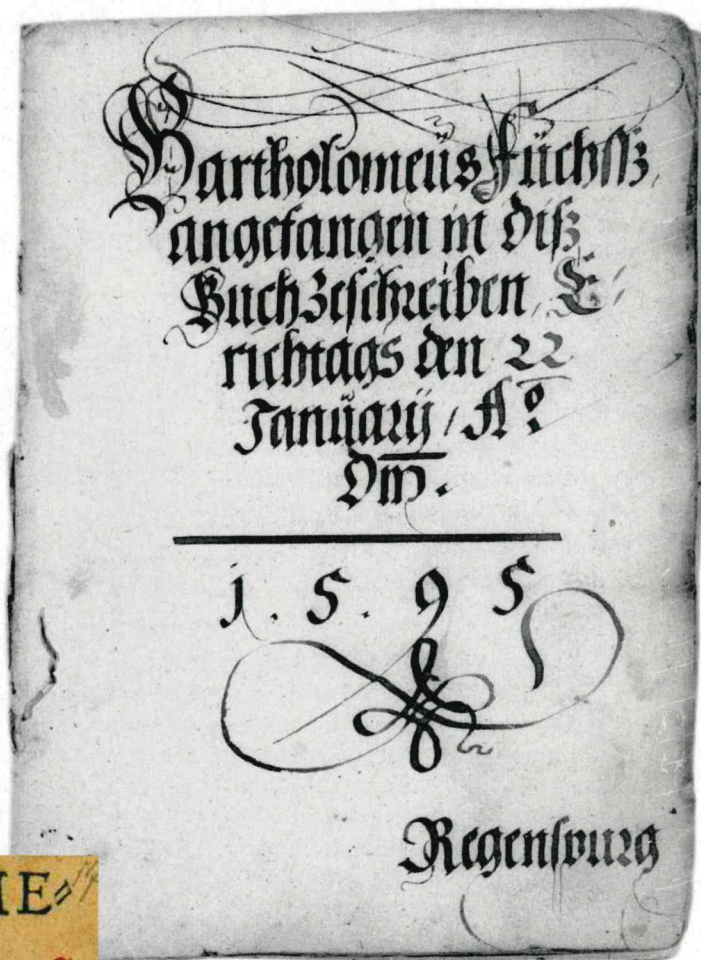 Bartholomeüs Füchsß,
angefangen in diß
Buch zeschreiben, E/
richtags den 22
Januarÿ / Aº
Dm̄.
1. 5. 9 5
Regenspurg
IE